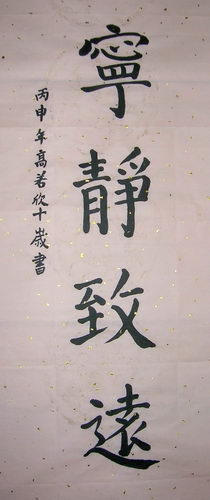 寧靜致遠
丙申年高若欣十歲書